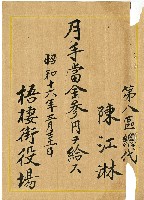 第八區總代
陳江淋
月手當金參円ヲ給ス
昭和十六年三月三十一日
梧棲街役場